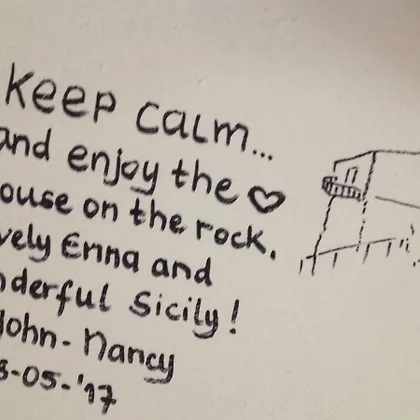 Keep calm...
and enjoy the ♡
ouse on the rock.
vely Enna and
nderful Sicily!
John - Nancy
8-05-'17